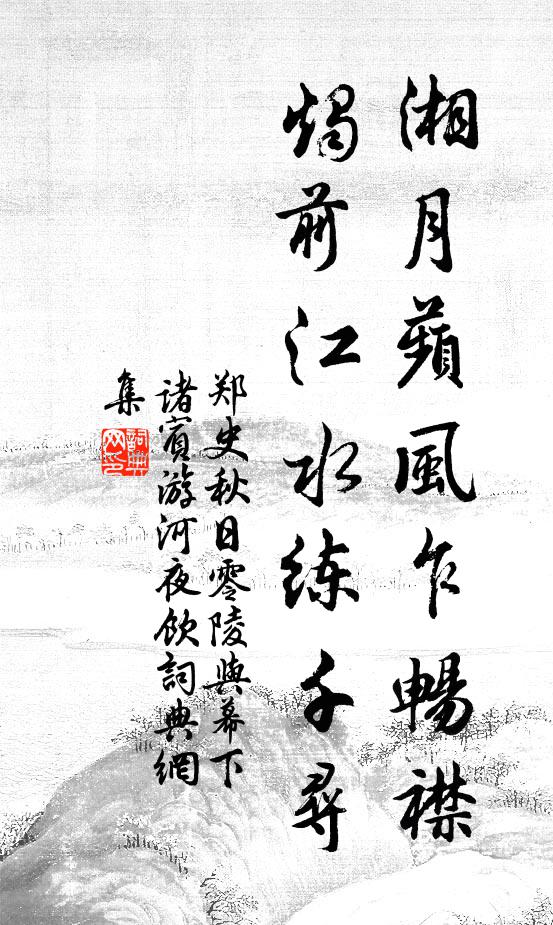 湘月蘋風乍暢襟
燭前江水練千尋
郑史秋日零陵與幕下
諸賓游河夜飲詞典網
集
詞典網印